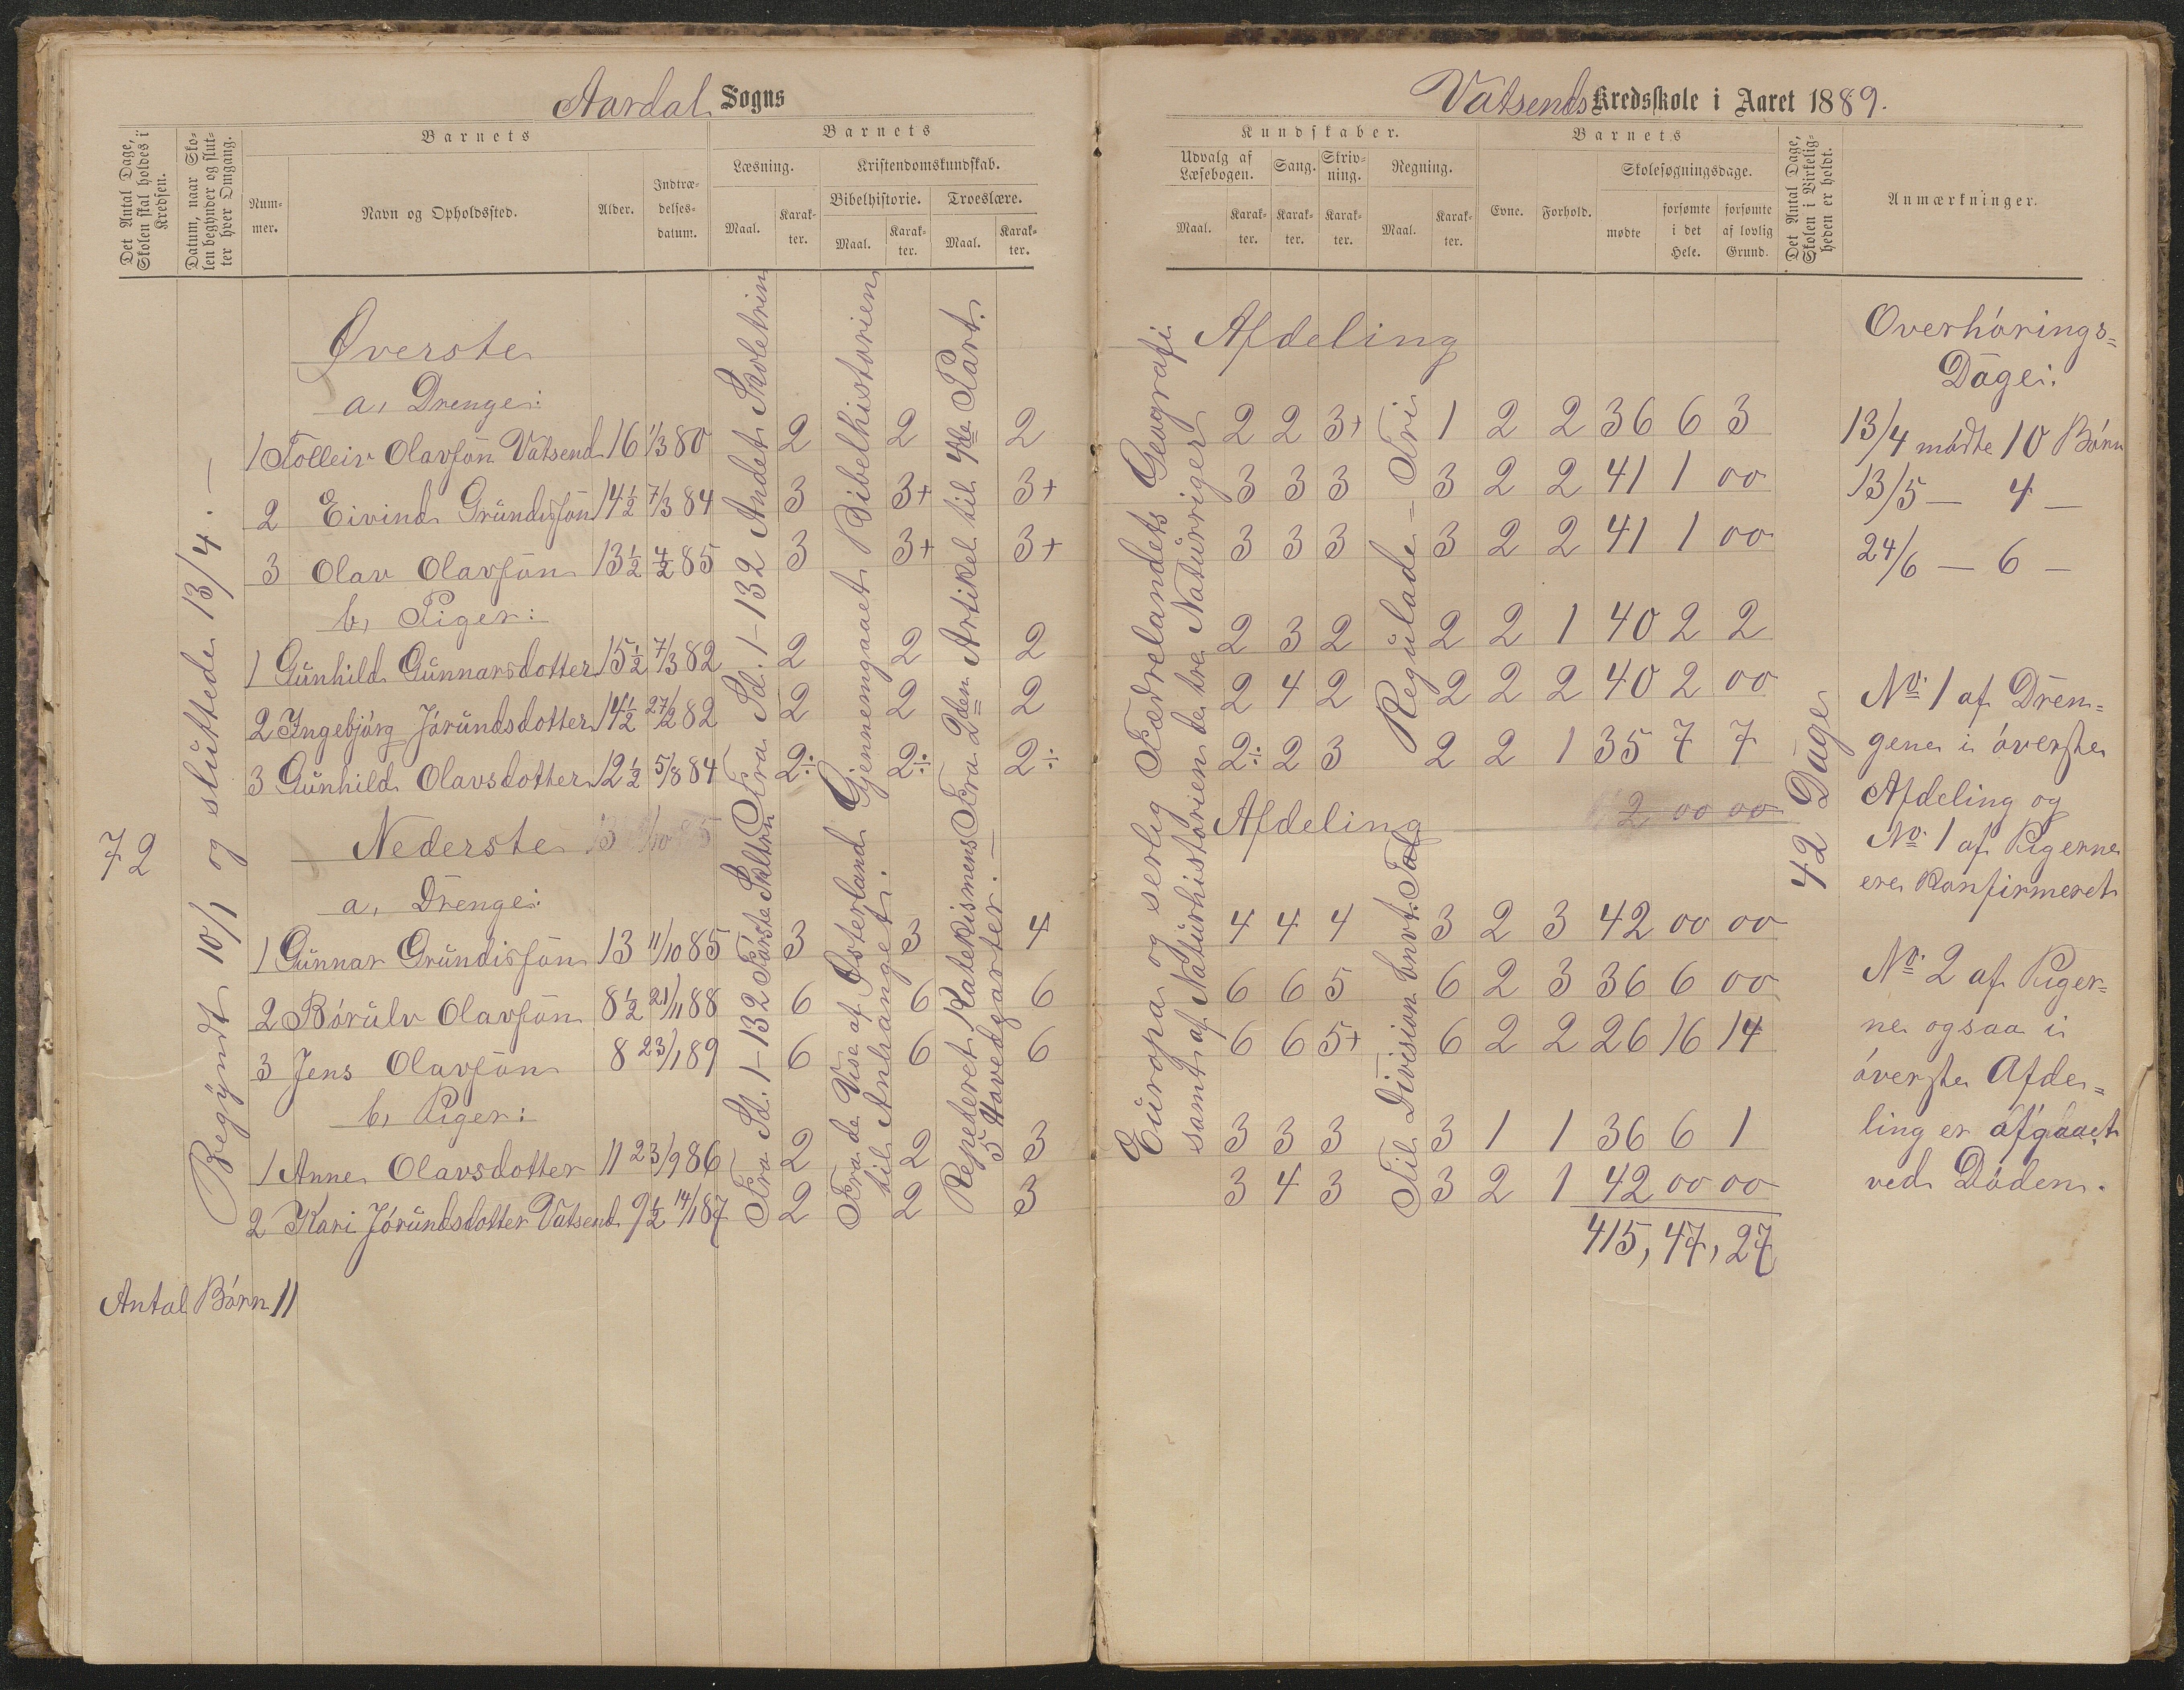 Aardal Sogns
Det Antal Dage,
Skolen skal holdes i
Kredsen.
Datum, naar Sko-
len begynder og slut-
ter hver Omgang.
Barnets
Num-
mer.
Navn og Opholdssted.
Alder.
Indtræ-
delses-
datum.
Barnets
Læsning.
Maal.
Karak-
ter.
Kristendomskundskab.
Bibelhistorie.
Maal.
Karak-
ter.
Troeslære.
Maal.
Karak-
ter.
72
Begyndt 10/1 og sluttede 13/4. —
Øverste
a, Drenge:
1 Tolleiv Olavsøn Vatsend 16 1/3 80 2 2 2
2 Eivind Grundesøn 14½ 7/3 84 3 3+ 3+
3 Olav Olavsøn 13½ 4/2 85 3 3+ 3+
b, Piger:
1 Gunhild Gunnarsdotter 15½ 7/3 82 2 2 2
2 Ingebjørg Jørundsdotter 14½ 27/2 82 2 2 2
3 Gunhild Olavsdotter 12½ 5/8 84 2÷ 2÷ 2÷
Nederste
a, Drenge:
1 Gunnar Grundisøn 13 11/10 85 3 3 4
2 Børulv Olavsøn 8½ 21/11 88 6 6 6
3 Jens Olavsøn 8 23/1 89 6 6 6
b, Piger:
1 Anne Olavsdotter 11 23/9 86 2 2 3
2 Kari Jørundsdotter Vatsend 9½ 14/1 87 2 2 3
Fra Sd. 1-132 Andet Skoletrin
Gjennemgaaet Bibelhistorien
Fra 2den Artikel til 4de Part.
Fra Sd. 1-132 Første Skltrn
Fra de Vise af Østerland
til Anhanget.
Repederet Katekismens
5 Hovedparter. —
Antal Børn 11
Vatsends Kredsskole i Aaret 1889.
Kundskaber.
Udvalg af
Læsebogen.
Maal.
Karak-
ter.
Sang.
Karak-
ter.
Skriv-
ning.
Karak-
ter.
Regning.
Maal.
Karak-
ter.
Barnets
Evne.
Forhold.
Skolesøgningsdage.
mødte
forsømte
i det
Hele.
forsømte
af lovlig
Grund.
Det Antal Dage,
Skolen i Virkelig-
heden er holdt.
Anmærkninger.
Afdeling
2 2 3+ 1 2 2 36 6 3
3 3 3 3 2 2 41 1 00
3 3 3 3 2 2 41 1 00
2 3 2 2 2 1 40 2 2
2 4 2 2 2 2 40 2 00
2÷ 2 3 2 2 1 35 7 7
Afdeling 2 00 00
4 4 4 3 2 3 42 00 00
6 6 5 6 2 3 36 6 00
6 6 5+ 6 2 2 26 16 14
3 3 3 3 1 1 36 6 1
3 4 3 3 2 1 42 00 00
415, 47, 27
Europa og serlig Fædrelandets Geografi
samt af Naturhistorien de tre Naturriger
Regulade – Tri
Til Division bnvt. Tal
42 Dage
Overhørings-
Dage:
13/4 mødte 10 Børn
13/5 — 4 —
24/6 — 6 —
No. 1 af Dren-
gene i øverste
Afdeling og
No. 1 af Pigerne
ere Konfirmeret
No. 2 af Piger-
ne ogsaa i
øverste Afde-
ling er afgaaet
ved Døden.